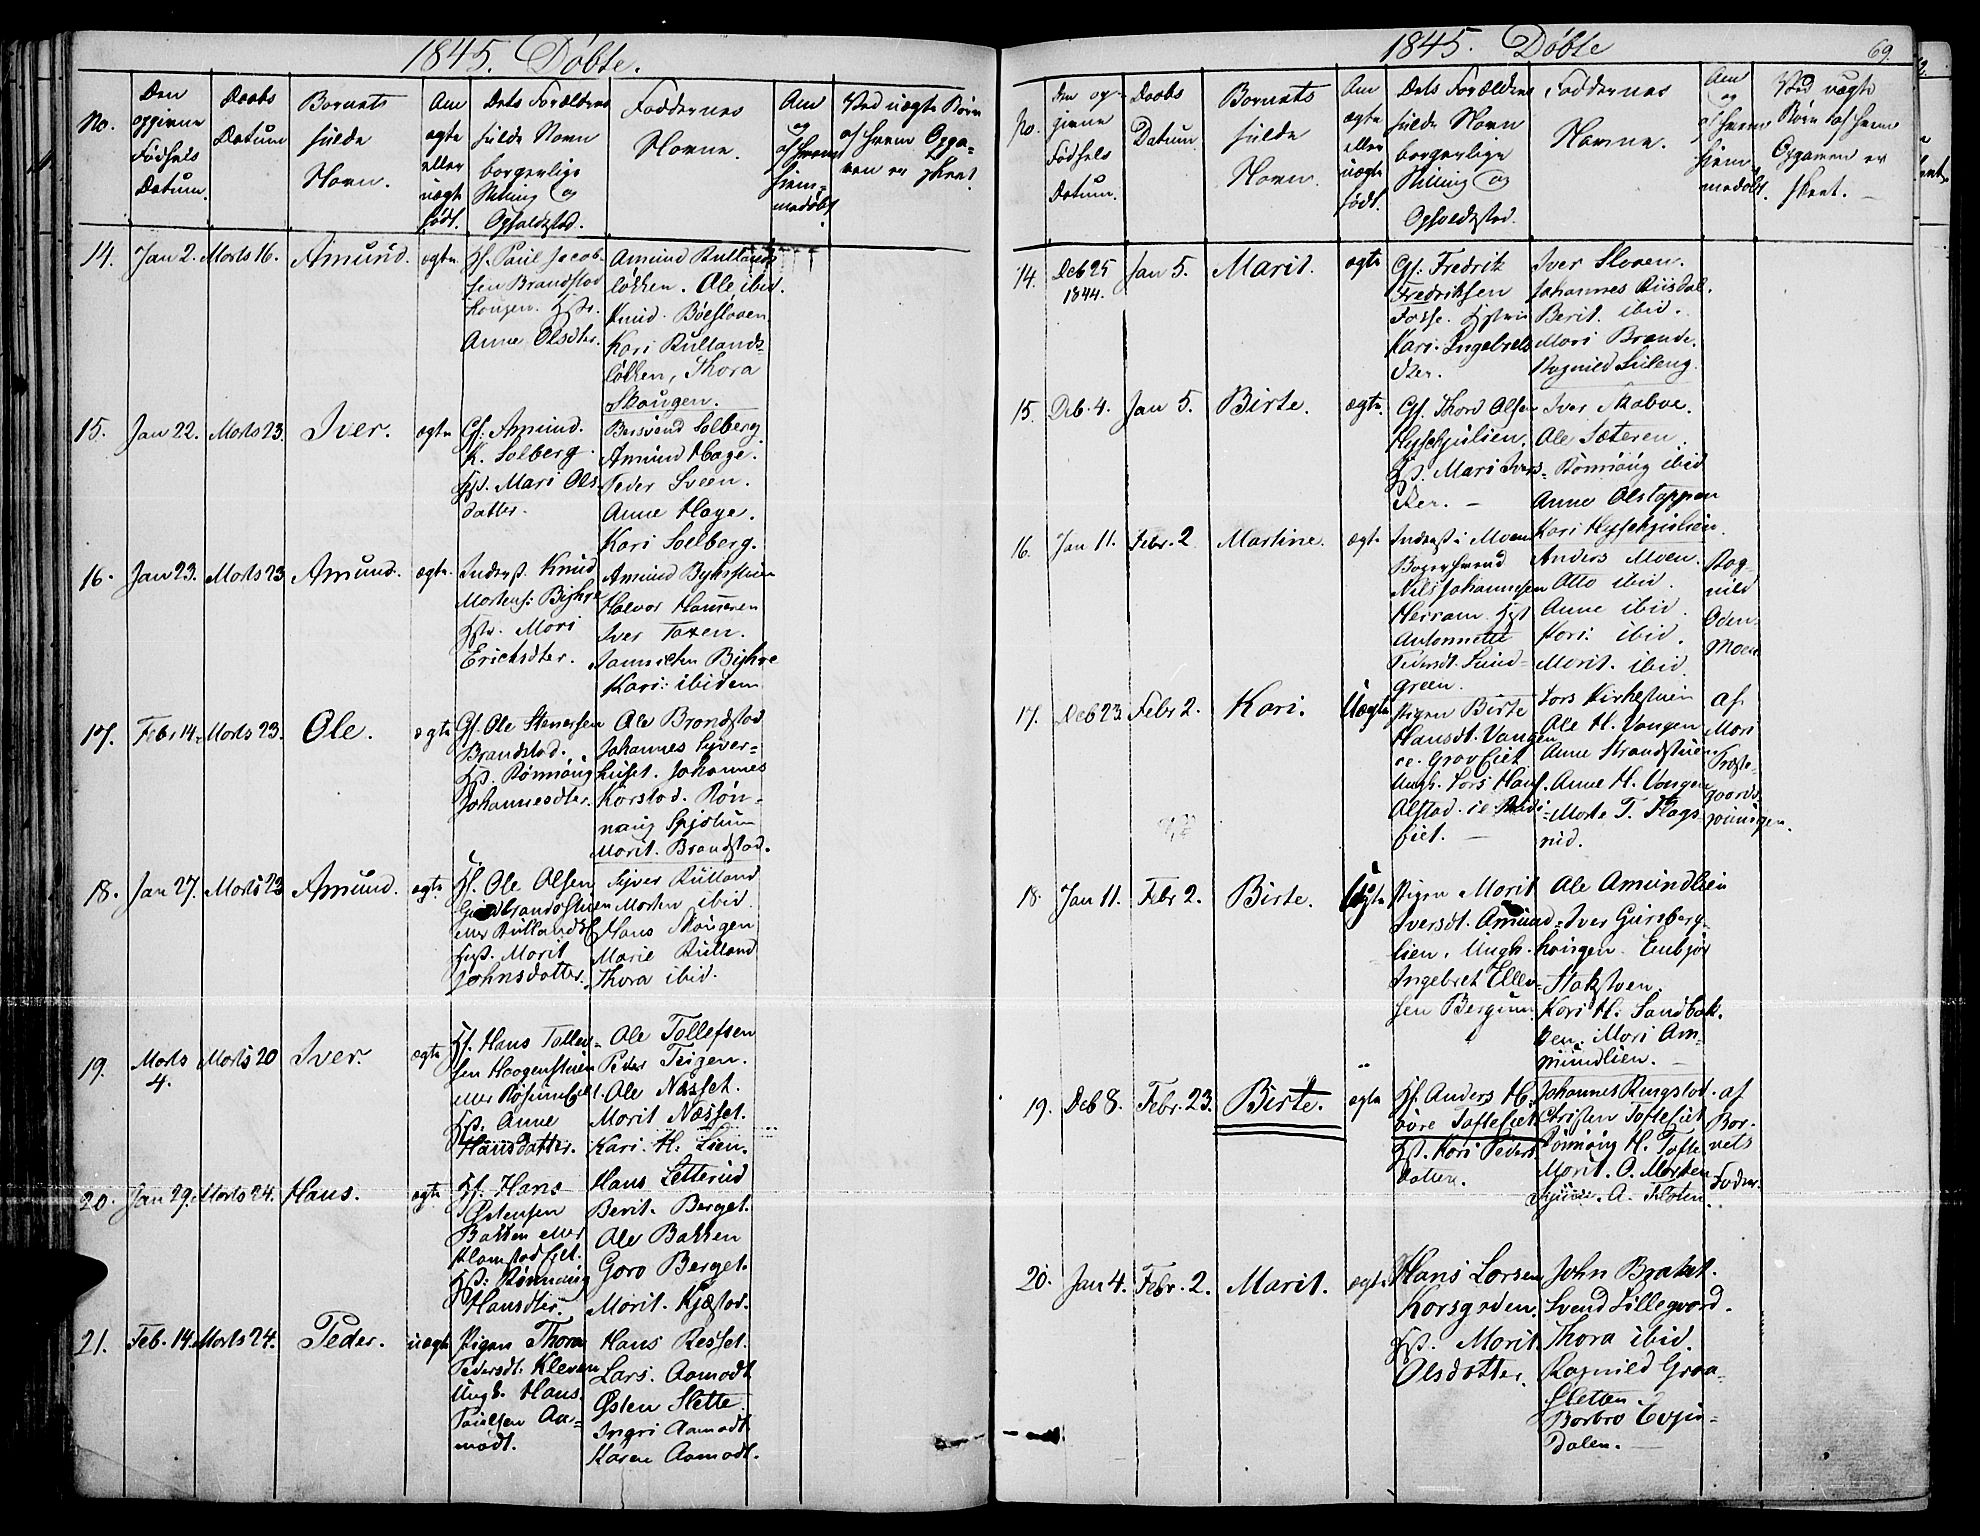 1845. Döbte.
No.
Den
opgivne
Födsels
Datum.
Daabs
Datum
Barnets
fulde
Navn.
Om
ægte
eller
uægte
født.
Dets Forældres
fulde Navn
borgerlige
Stilling og
Opholdsted.
Faddernes
Navne.
Om
og
af hvem
hjem-
medöbt
Ved uægte Børn
af hvem Opga-
ven er skeet
14. Jan 2. Marts 16. Amund. ægte.
Gf. Paul Jacob-
sen Brandstad
Haugen. Hstr.
Anne Olsdter.
Amund Rullands
løkken. Ole ibid.
Knud Böesloen
Kari Rullands-
løkken, Thora
Skougen.
15. Jan 22. Marts 23. Iver. ægte
Gf: Amund.
K. Solberg.
Hst. Mari Ols-
datter.
Bersvend Solberg.
Amund Hage.
Peder Sveen.
Anne Hage.
Kari Solberg.
16. Jan 23. Marts 23 Amund. ægte.
Inderst. Knud
Mortens: Byhre
Hstr. Mari
Erichsdter.
Amund Byhrstuen
Halvor Hameren
Iver Toxen.
Byhre
Kari: ibidem
17. Feb 14. Marts 23. Ole. ægte
Gf. Ole Stenersen
Brandstad.
Hst. Rønnaug
Johannesdter.
Ole Brandstad
Johannes Syver-
huset. Johannes
Korstad. Røn-
naug
Marit. Brandstad.
18. Jan 27. Marts 23 Amund. ægte.
Hf. Ole Olsen
Gudbrandsstuen
eller Rullands
Hust. Marit
Johnsdatter.
Syver Rulland
Morten ibid.
Hans Skougen
Marie Rulland
Thora ibid.
19. Marts
4. Marts 20 Iver. ægte
Hf. Hans Tollev-
sen Haagenstuen
eller
Hst. Anne
Hansdatter.
Ole Tollefsen
Peder Teigen.
Ole Næsset.
Marit Næsset.
Kari. H. Lien.
20. Jan 29. Marts 24. Hans. ægte
Hf. Hans
Østensen
Bakken eller
Hst: Rønnaug
Hansdter.
Hans Letterud
Berit. Berget.
Ole Bakken
Goro Berget.
Marit. Kjæstad.
21. Feb. 14. Marts 24. Peder. uægte
Pigen Thora
Pedersdt. Kleven
Ungk. Hans.
Paulsen Aa-
modt.
Hans Resset.
Lars. Aamodt
Østen Slette.
Ingri Aamodt.
Karen Aamodt.
1845. Döbte
69.
No.
Den op-
givne
Födsels
Datum.
Daabs
Datum
Barnets
fulde
Navn.
Om
ægte
eller
uægte
født.
Dets Forældres
fulde Navn
borgerlige
Stilling og
Opholdsted.
Faddernes
Navne.
Om
og
af hvem
hjem-
medöbt.
Ved uægte
Börn af hvem
Opgaven er
skeet.
14. Deb 25
1844. Jan 5. Marit. ægte
Gf: Fredrik
Fredriksen
Fosse. Hstru
Kari. Ingebrets
dter.
Iver Sloen.
Johannes Riisdal.
Berit. ibid.
Mari Brande.
Ragnild Lileng.
15. Deb. 4. Jan 5. Birte. ægte.
Gf. Thord Olsen
Hyschjulien.
Hst. Mari Ivers-
dter.
Iver Skaboe.
Ole Sæteren.
Rønnaug ibid
Anne Olstappen
Kari Hyschjulien.
16. Jan 11. Febr. 2 Martine. ægte
Inderst i Moen
Bager svend
Nils Johannesen
Herram. Hst
Antonnette
Pedersdt. Lund-
green.
Anders Moen.
Otto ibid.
Anne ibid.
Kari. ibid.
Marit. ibid.
Rag-
nild
Oden
Moen
17. Deb 23. Febr 2. Kari. Uægte
Pigen Birte
Hansdt. Vangen
Ungk. Lars Hans.
Alstad. ie
eiet.
Lars Kirkestuen
Ole H. Vangen
Anne Strandstuen
Anne H. Vangen
Marte T. Flags-
rud.
af
Mari
Præste-
gaards
18. Jan 11. Febr 2. Birte. Uægte
Pigen Marit
Iversdt. Amund-
lien. Ungk.
Ingebret Ellev-
sen Bergum.
Ole Amundlien
Iver Gursberg-
haugen. Embjør
Stakstoen.
Kari H. Sandbak-
ken. Mari Am-
mundlien.
19. Deb 8. Febr. 23. Birte. ægte
Hf. Anders H.
Hst. Kari Peders
datter.
Johannes Ringstad.
Christen Tofteeiet
Rønnaug H. Tofte
Marit. O. Morken
A. Floten.
af
Bar-
nets
Fader.
20. Jan 4. Febr. 2. Marit. ægte
Hans Larsen
Korsgrden.
Hst. Marit
Olsdatter.
John Brattet.
Svend Lillegaard.
Thora ibid.
Ragnild Graa-
sletten
Barbro Evjen-
dalen.